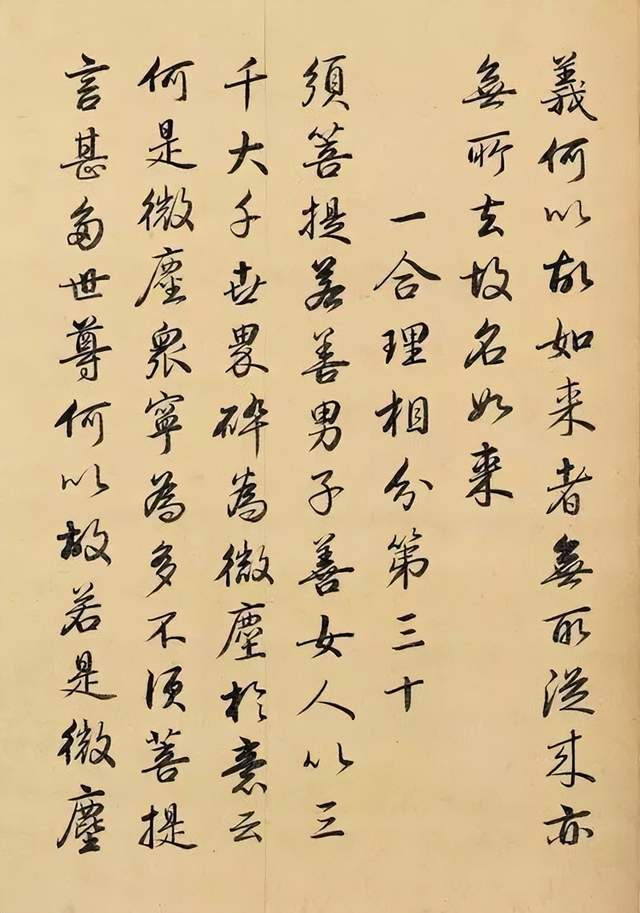 義何以故如来者無所從来亦
無所去故名如来
一合理相分第三十
須菩提若善男子善女人以三
千大千世界碎為微塵於意云
何是微塵眾寧為多不須菩提
言甚多世尊何以故若是微塵